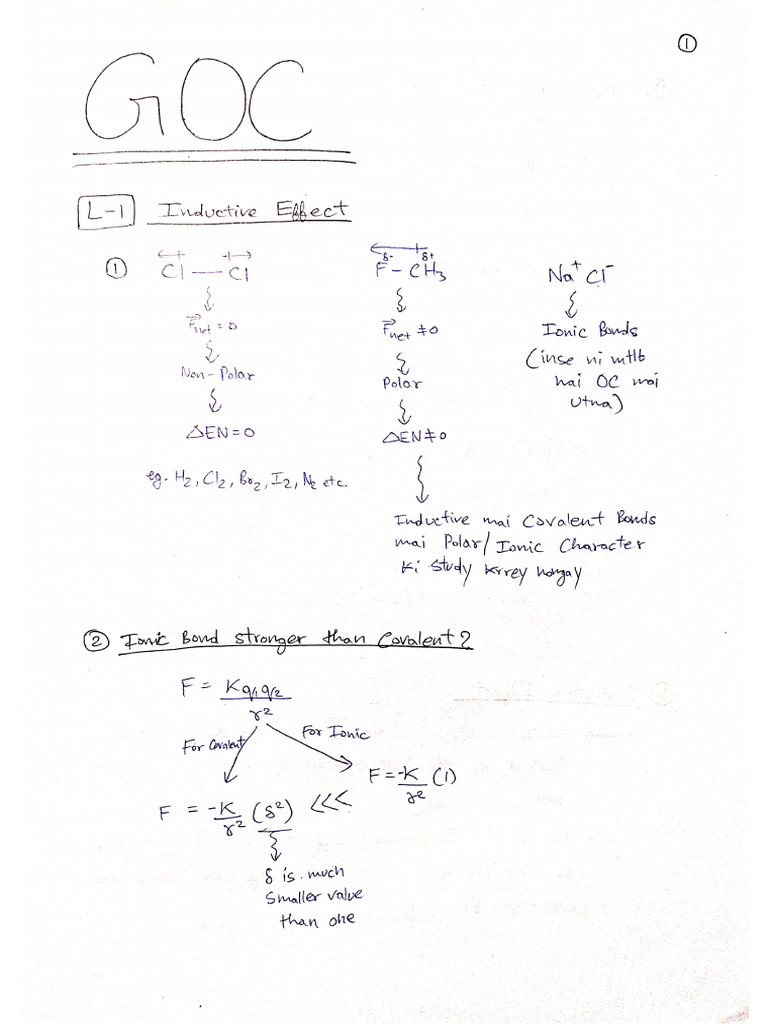 ①
GOC
L-1 Inductive Effect
① Cl — Cl
F⃗net = 0
Non-Polar
ΔEN = 0
eg. H2, Cl2, Br2, I2, N2 etc.
δ- δ+
F - CH3
F⃗net ≠ 0
Polar
ΔEN ≠ 0
Inductive mai Covalent Bonds
mai Polar/Ionic Character
Ki study krrey hongay
Na+ Cl-
Ionic Bonds
(inse ni mtlb
hai OC mai
utna)
② Ionic Bond stronger than Covalent?
F = Kq1q2/r2
For Covalent
For Ionic
F = -K/r2 (1)
F = -K/r2 (δ2) <<<
δ is much
Smaller value
than one